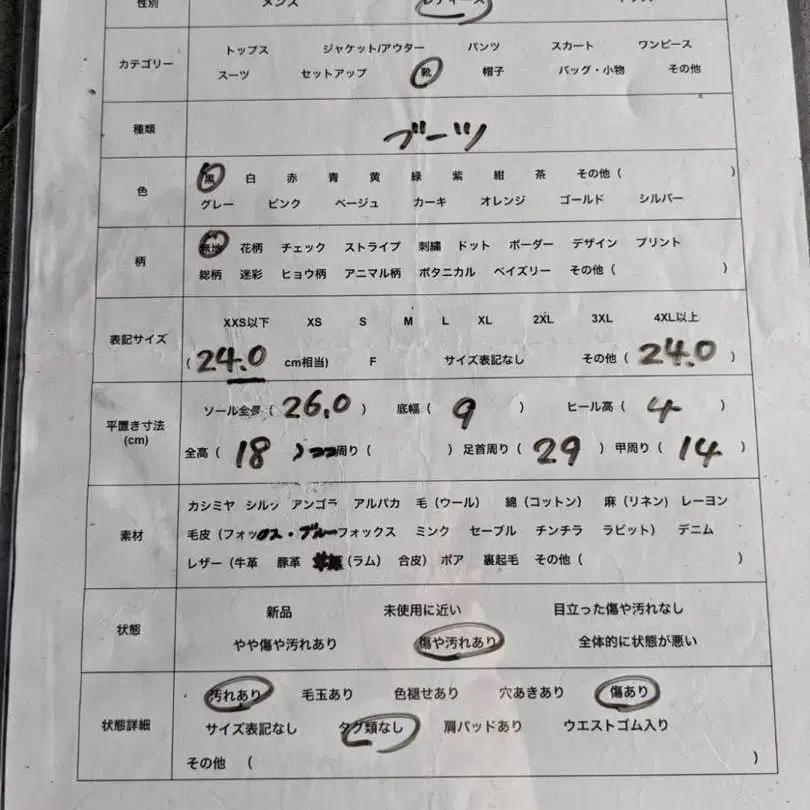 性別 メンズ レディース
カテゴリー トップス ジャケット/アウター パンツ スカート ワンピース
スーツ セットアップ 靴 帽子 バッグ・小物 その他
種類 ブーツ
色 黒 白 赤 青 黄 緑 紫 紺 茶 その他 ( )
グレー ピンク ベージュ カーキ オレンジ ゴールド シルバー
柄 無地 花柄 チェック ストライプ 刺繍 ドット ボーダー デザイン プリント
総柄 迷彩 ヒョウ柄 アニマル柄 ボタニカル ペイズリー その他 ( )
表記サイズ XXS以下 XS S M L XL 2XL 3XL 4XL以上
( 24.0 cm相当) F サイズ表記なし その他 ( 24.0 )
平置き寸法 (cm) ソール全長 ( 26.0 ) 底幅 ( 9 ) ヒール高 ( 4 )
全高 ( 18 ) 周り ( ) 足首周り ( 29 ) 甲周り ( 14 )
素材 カシミヤ シルク アンゴラ アルパカ 毛 (ウール) 綿 (コットン) 麻 (リネン) レーヨン
毛皮 (フォックス・ブルーフォックス ミンク セーブル チンチラ ラビット) デニム
レザー (牛革 豚革 (ラム) 合皮) ボア 裏起毛 その他 ( )
状態 新品 未使用に近い 目立った傷や汚れなし
やや傷や汚れあり 傷や汚れあり 全体的に状態が悪い
状態詳細 汚れあり 毛玉あり 色褪せあり 穴あきあり 傷あり
サイズ表記なし タグ類なし 肩パッドあり ウエストゴム入り
その他 ( )